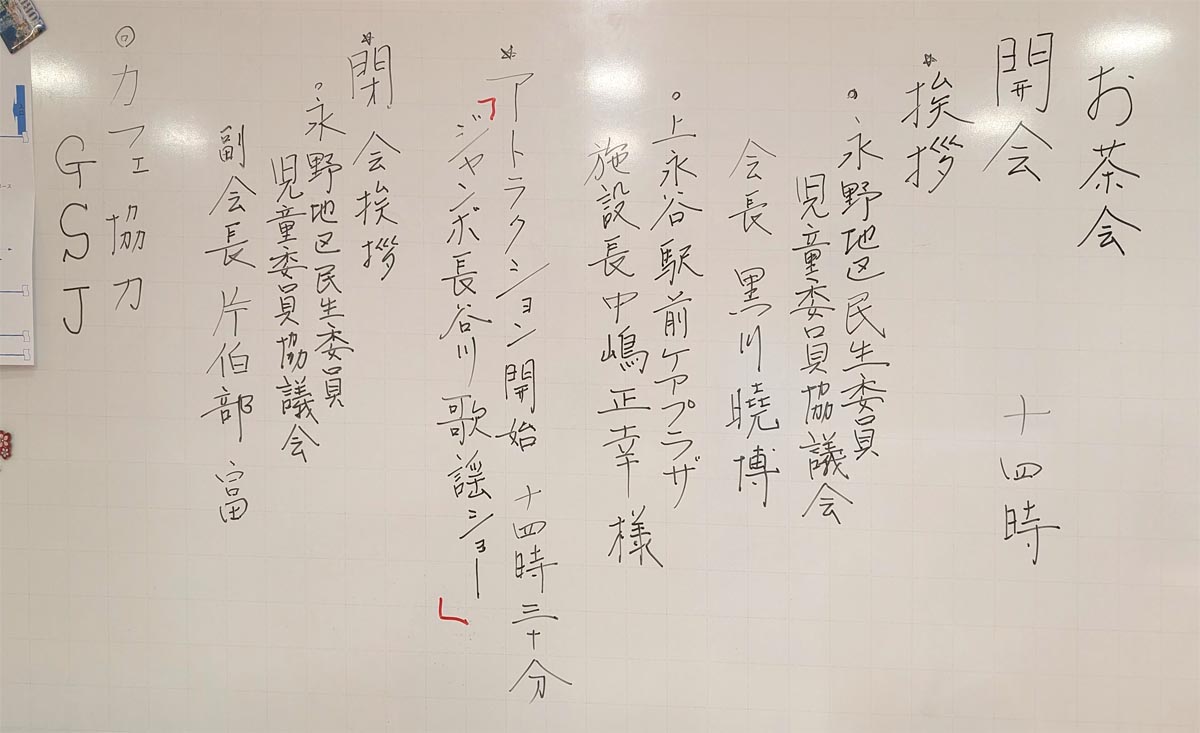 お茶会
開会 十四時
*挨拶
・永野地区民生委員
児童委員協議会
会長 黒川曉博
・上永谷駅前ケアプラザ
施設長中嶋正幸様
*アトラクション開始 十四時三十分
「ジャンボ長谷川歌謡ショー」
*閉会挨拶
・永野地区民生委員
児童委員協議会
副会長片伯部富
◎カフェ協力
GSJ